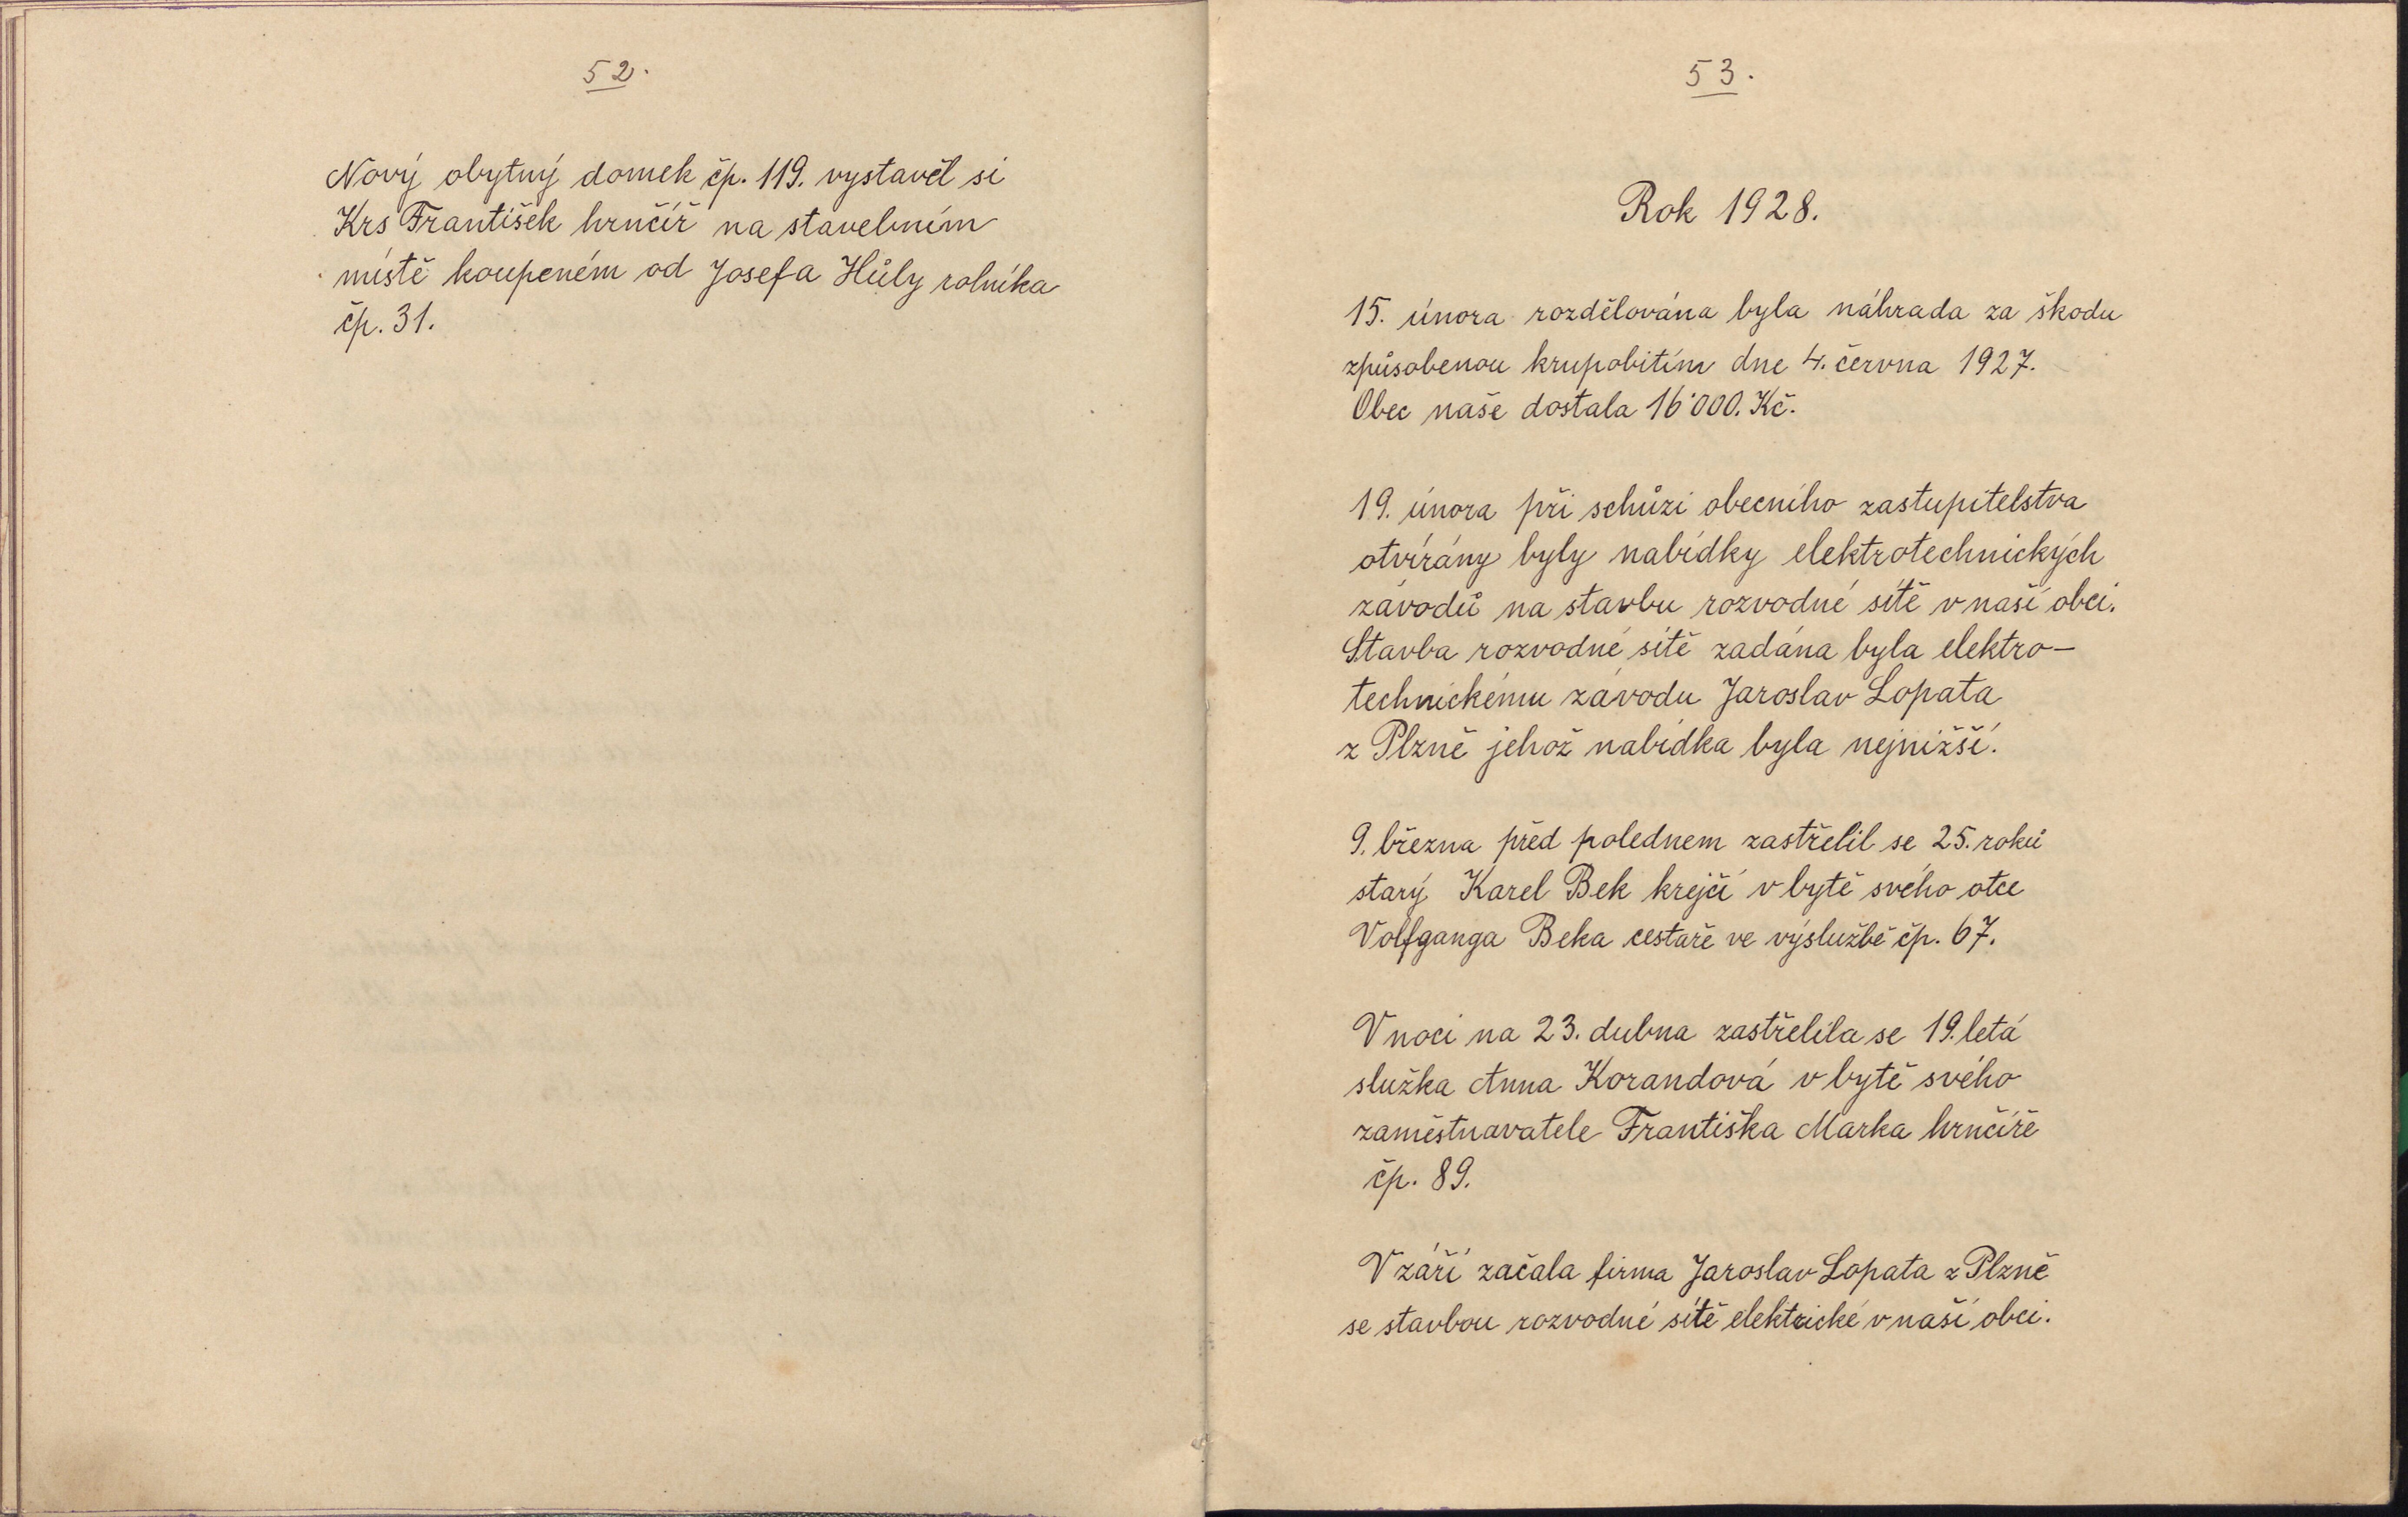 52.
Nový obytný domek čp. 119. vystavěl si
Krs František hrnčíř na stavebním
místě koupeném od Josefa Hůly rolníka
čp. 31.
53.
Rok 1928.
15. února rozdělována byla náhrada za škodu
způsobenou krupobitím dne 4. června 1927.
Obec naše dostala 16'000. Kč.
19. února při schůzi obecního zastupitelstva
otvírány byly nabídky elektrotechnických
závodů na stavbu rozvodné sítě v naší obci.
Stavba rozvodné sítě zadána byla elektro-
technickému závodu Jaroslav Lopata
z Plzně jehož nabídka byla nejnižší.
9. března před polednem zastřelil se 25. roků
starý Karel Bek krejčí v bytě svého otce
Volfganga Beka cestaře ve výslužbě čp. 67.
V noci na 23. dubna zastřelila se 19. letá
služka Anna Korandová v bytě svého
zaměstnavatele Františka Marka hrnčíře
čp. 89.
V září začala firma Jaroslav Lopata z Plzně
se stavbou rozvodné sítě elektrické v naší obci.